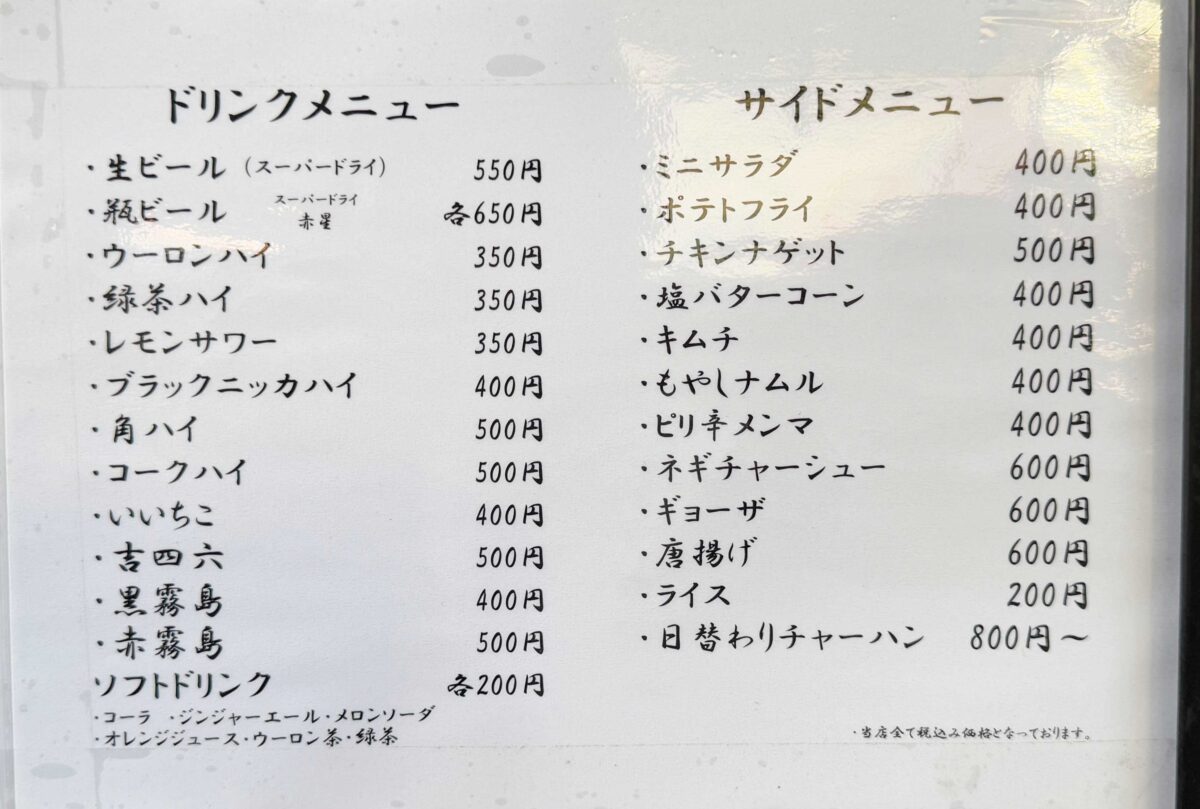 ドリンクメニュー
・生ビール (スーパードライ) 550円
・瓶ビール スーパードライ 赤星 各650円
・ウーロンハイ 350円
・緑茶ハイ 350円
・レモンサワー 350円
・ブラックニッカハイ 400円
・角ハイ 500円
・コークハイ 500円
・いいちこ 400円
・吉四六 500円
・黒霧島 400円
・赤霧島 500円
ソフトドリンク 各200円
・コーラ ・ジンジャーエール・メロンソーダ
・オレンジジュース・ウーロン茶・緑茶
サイドメニュー
・ミニサラダ 400円
・ポテトフライ 400円
・チキンナゲット 500円
・塩バターコーン 400円
・キムチ 400円
・もやしナムル 400円
・ピリ辛メンマ 400円
・ネギチャーシュー 600円
・ギョーザ 600円
・唐揚げ 600円
・ライス 200円
・日替わりチャーハン 800円～
・当店全て税込み価格となっております。